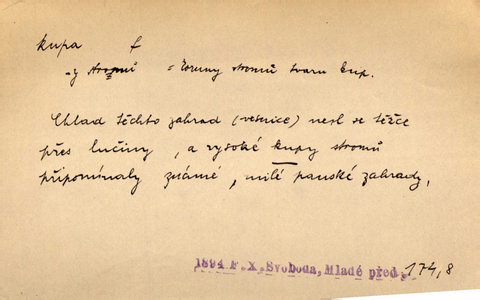 kupa f
-y stromů = koruny stromů tvaru kup.
Chlad těchto zahrad (vesnice) nesl se těžce
přes lučiny, a vysoké kupy stromů
připomínaly známé, milé panské zahrady,
1894 F.X.Svoboda, Mladé před. 174,8